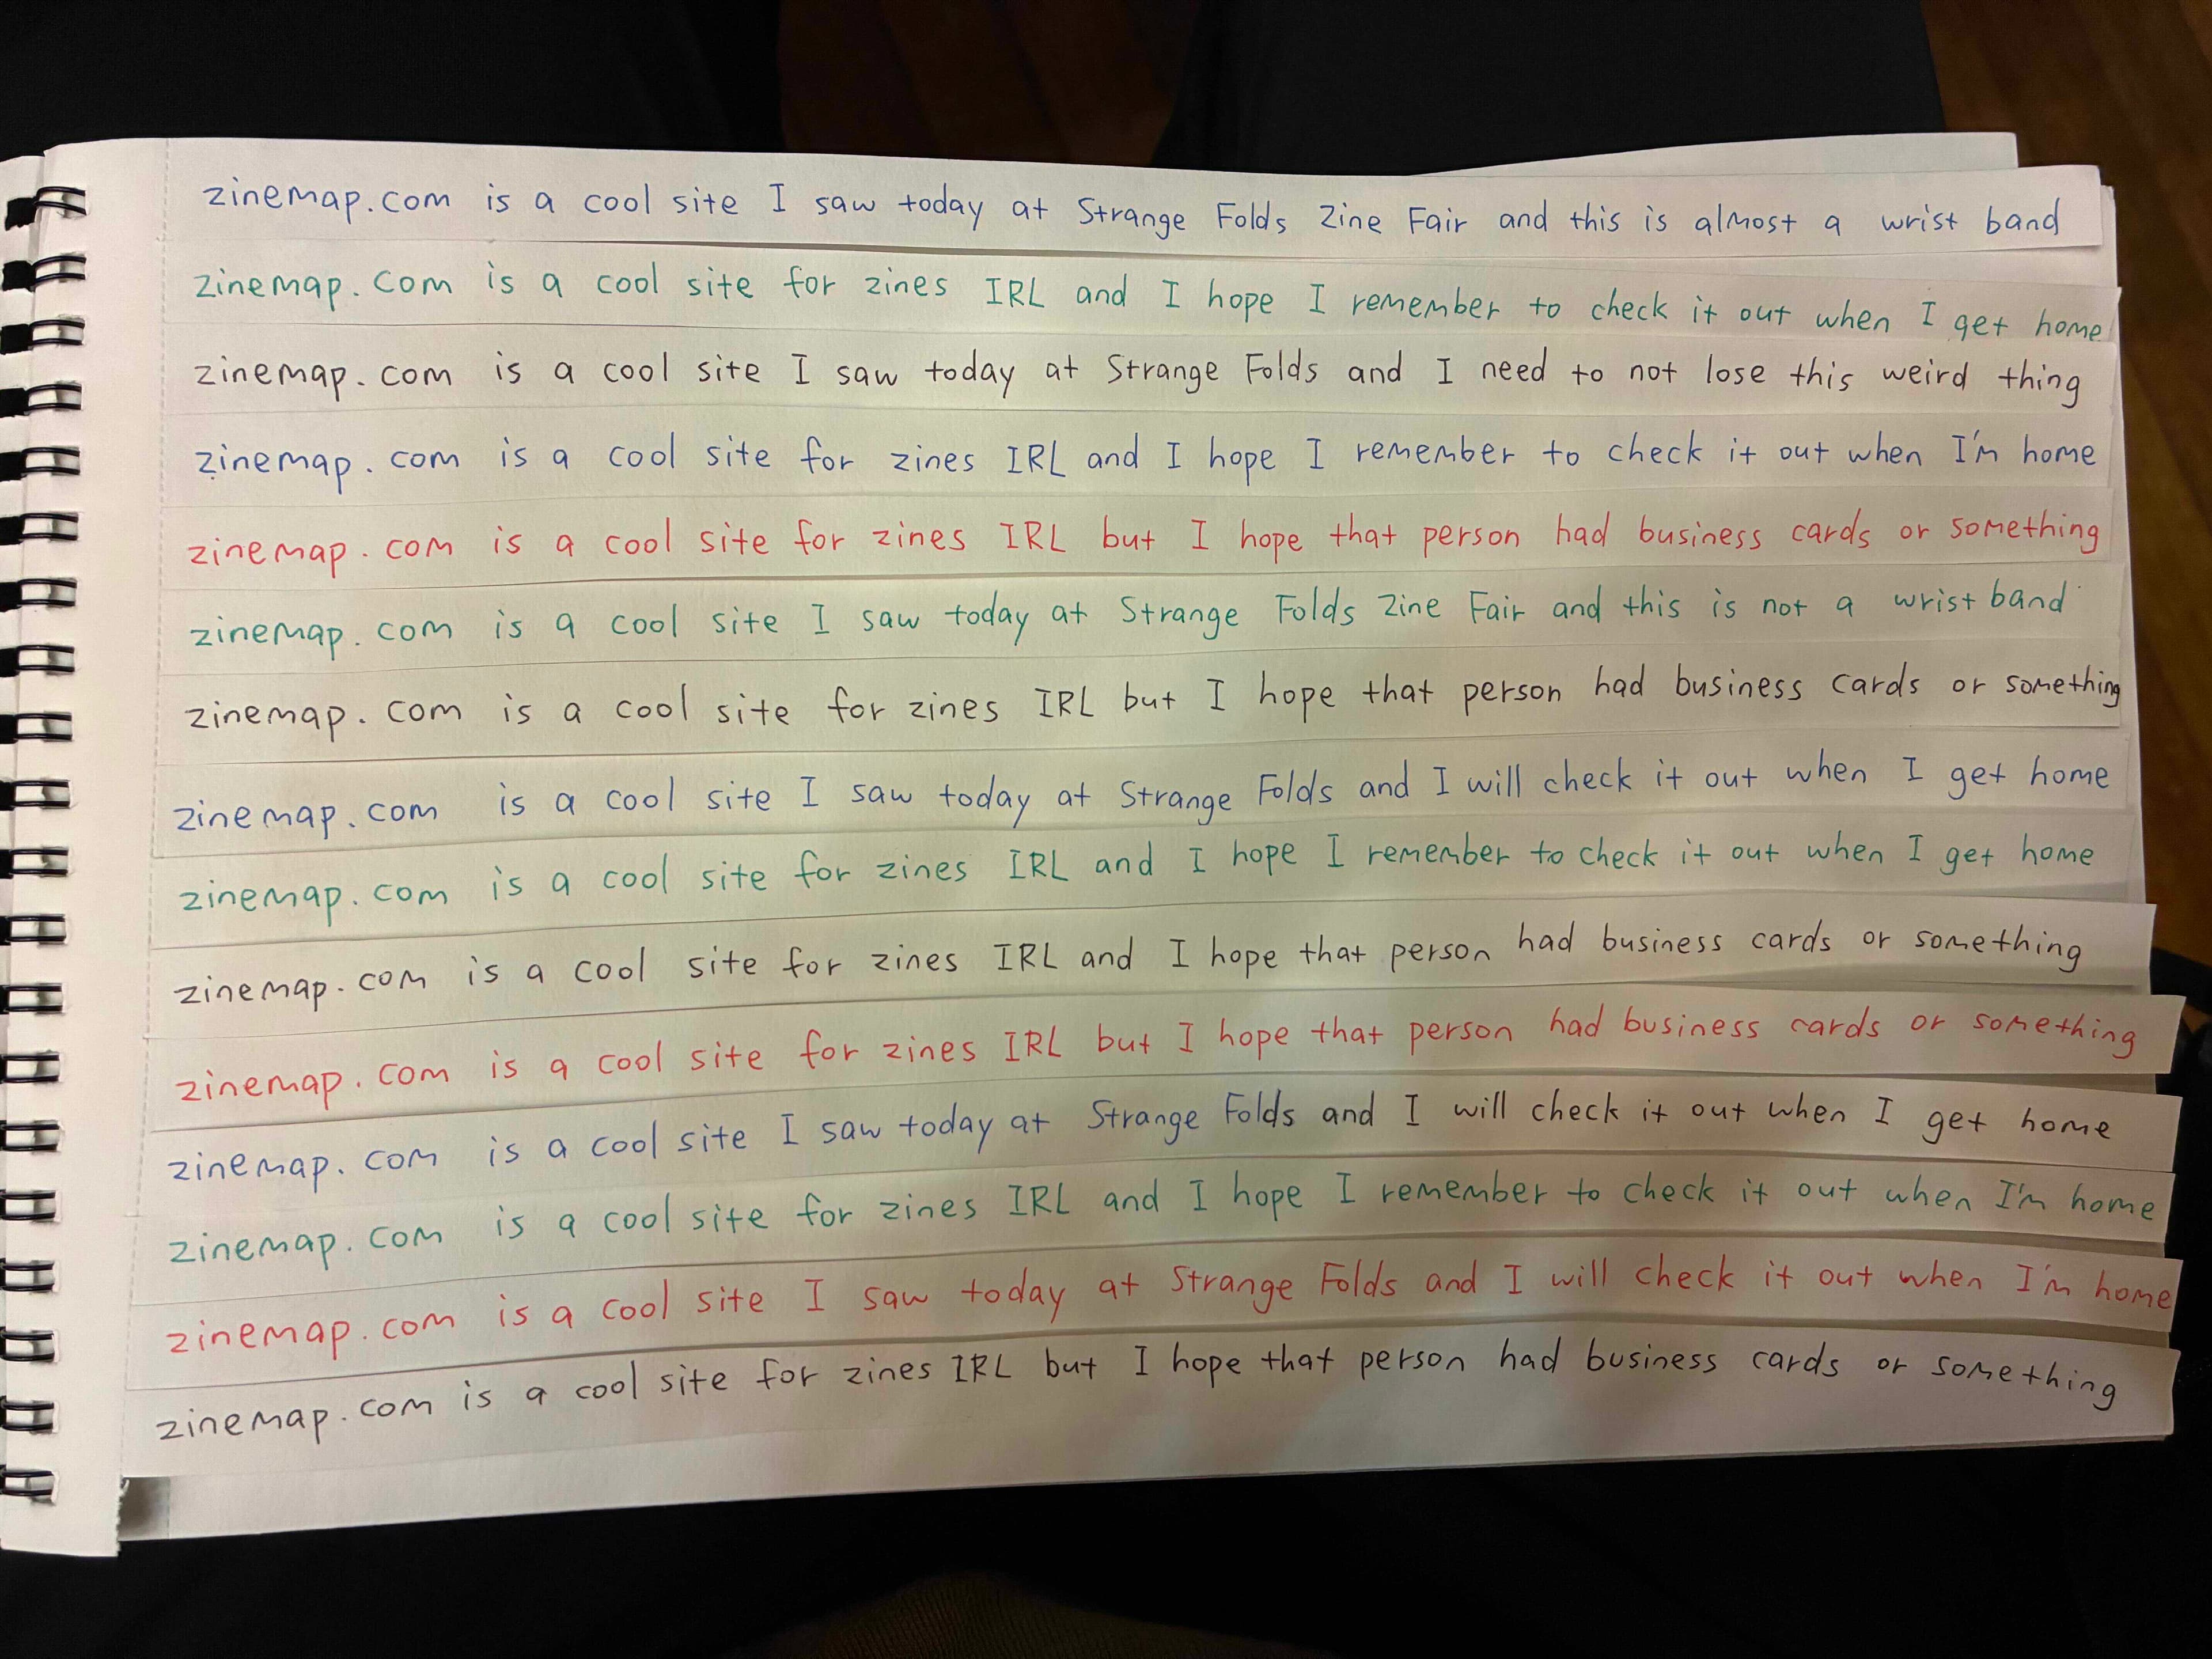 zinemap.com is a cool site I saw today at Strange Folds Zine Fair and this is almost a wrist band
zinemap.com is a cool site for zines IRL and I hope I remember to check it out when I get home
zinemap.com is a cool site I saw today at Strange Folds and I need to not lose this weird thing
zinemap.com is a cool site for zines IRL and I hope I remember to check it out when I'm home
zinemap.com is a cool site for zines IRL but I hope that person had business cards or something
zinemap.com is a cool site I saw today at Strange Folds Zine Fair and this is not a wrist band
zinemap.com is a cool site for zines IRL but I hope that person had business cards or something
zinemap.com is a cool site I saw today at Strange Folds and I will check it out when I get home
zinemap.com is a cool site for zines IRL and I hope I remember to check it out when I get home
zinemap.com is a cool site for zines IRL and I hope that person had business cards or something
zinemap.com is a cool site for zines IRL but I hope that person had business cards or something
zinemap.com is a cool site I saw today at Strange Folds and I will check it out when I get home
zinemap.com is a cool site for zines IRL and I hope I remember to check it out when I'm home
zinemap.com is a cool site I saw today at Strange Folds and I will check it out when I'm home
zinemap.com is a cool site for zines IRL but I hope that person had business cards or something